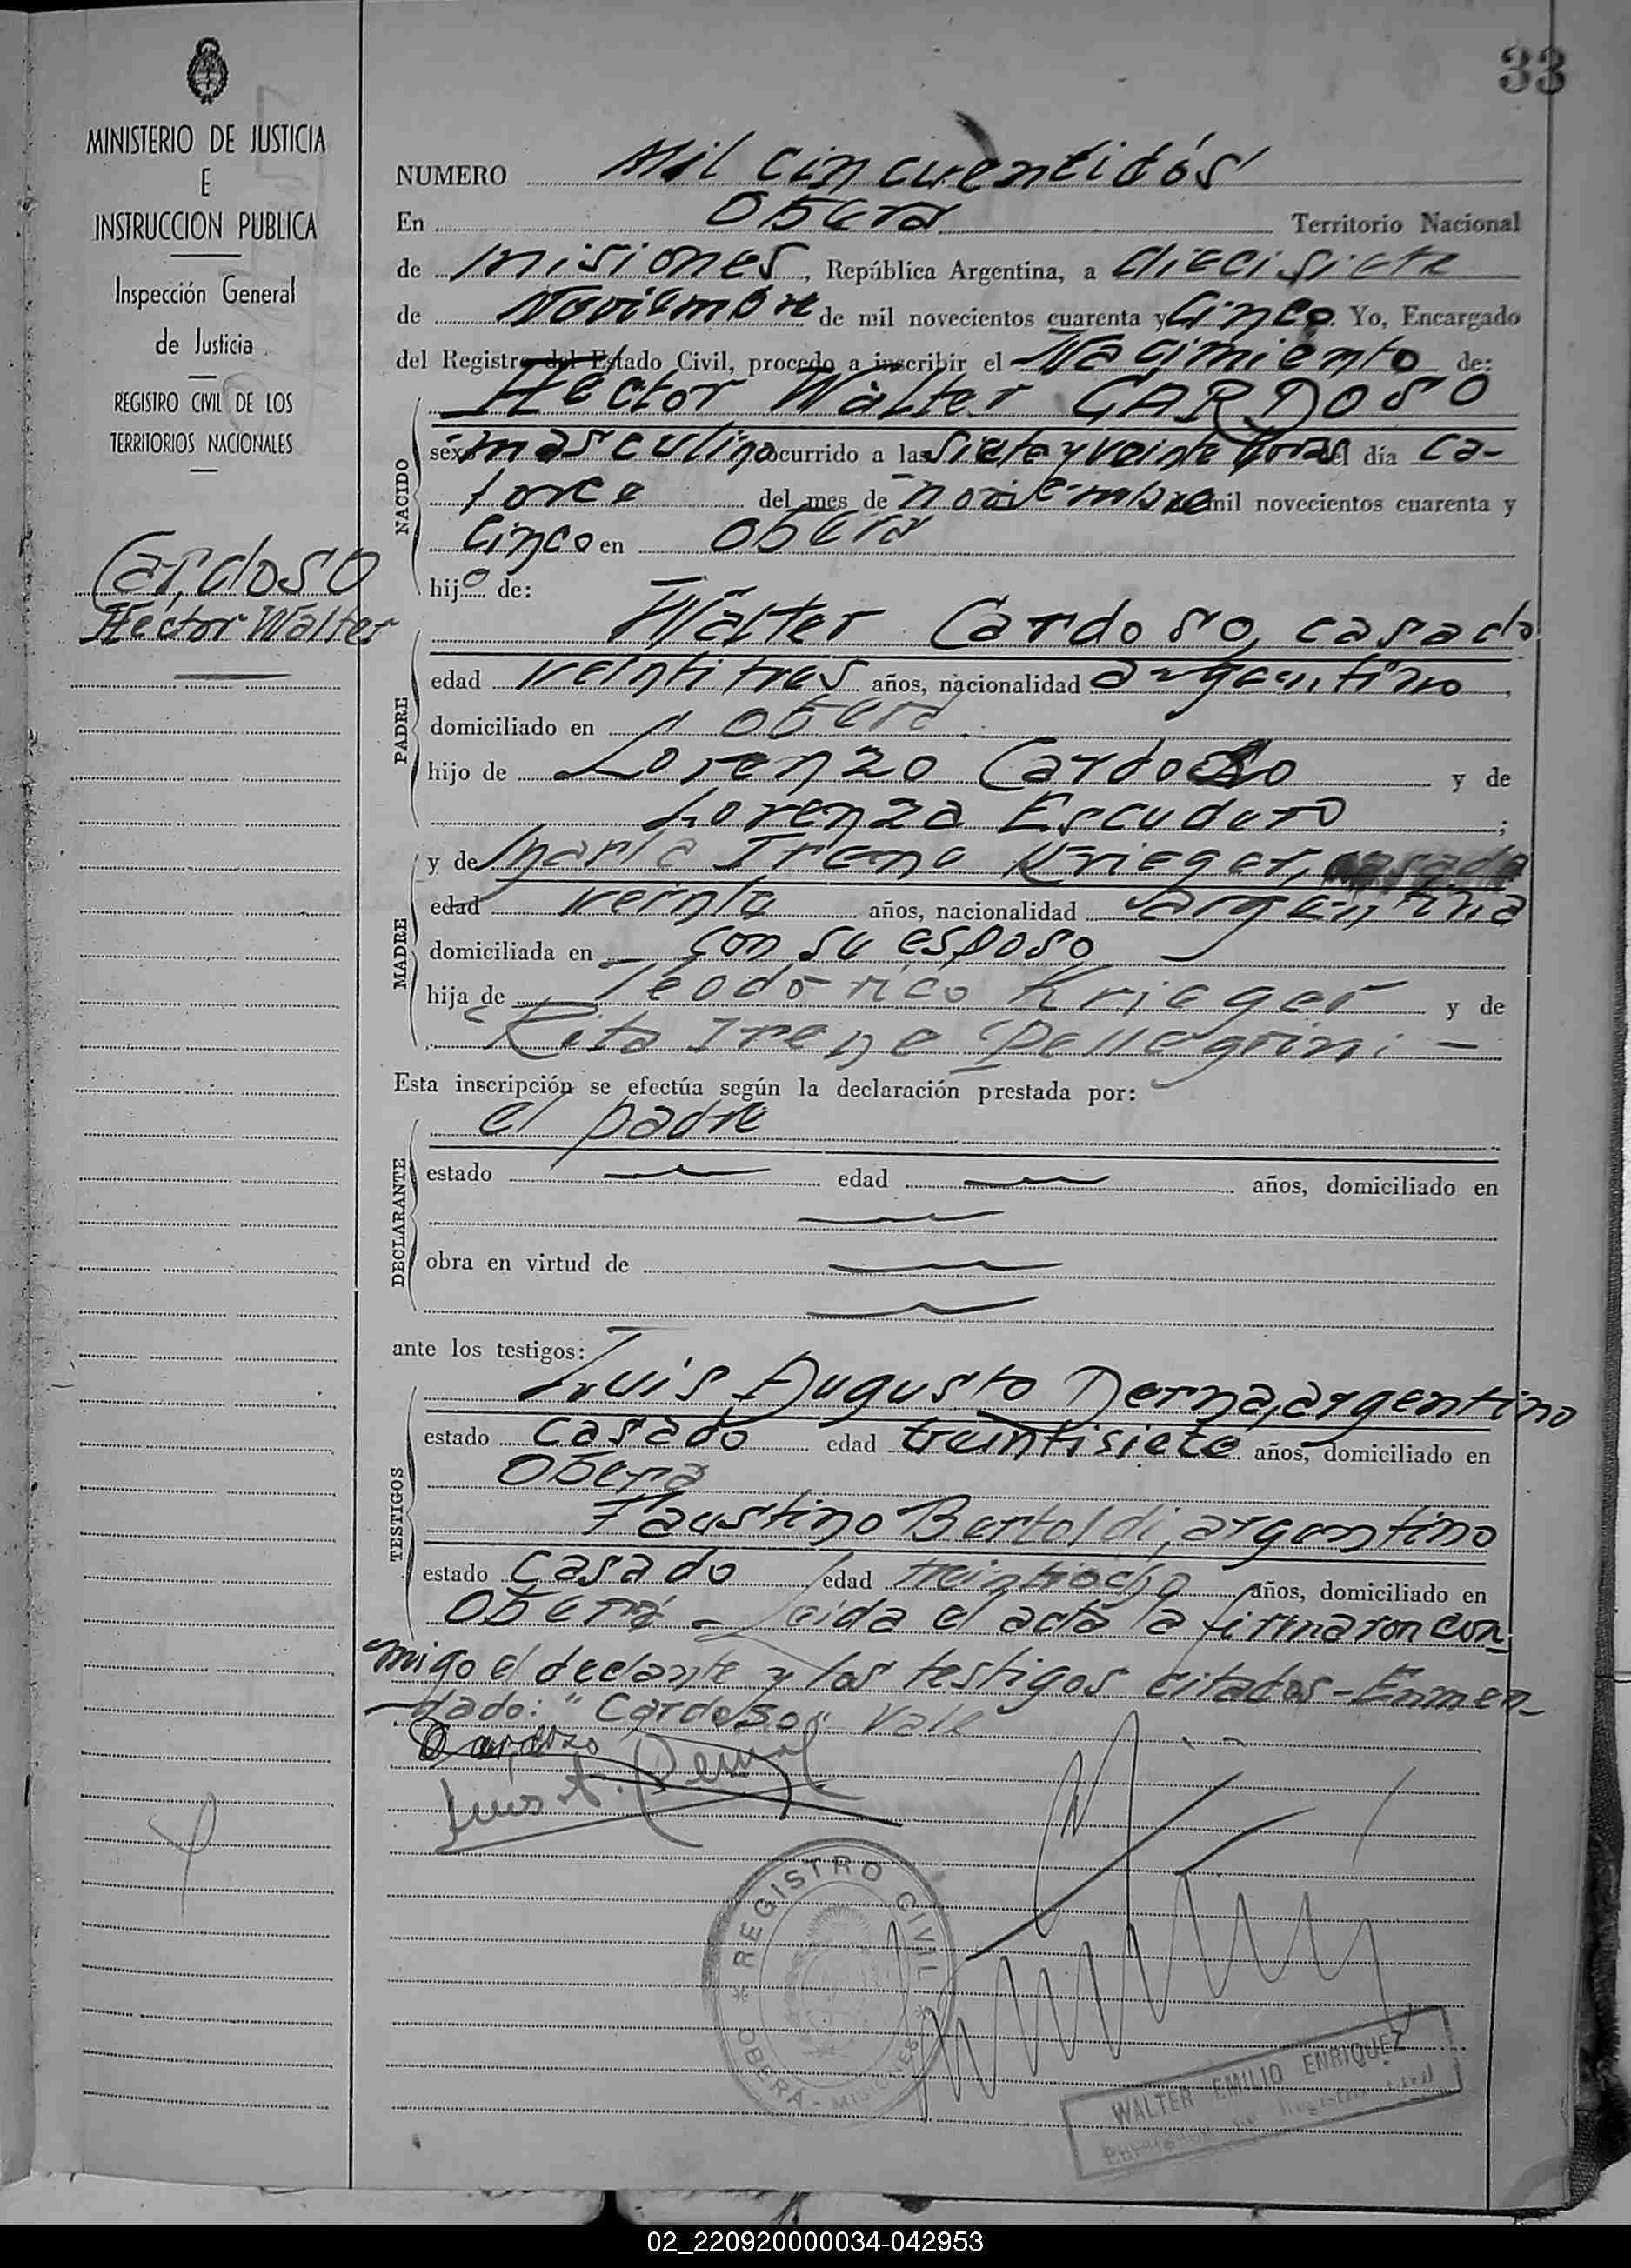 33
MINISTERIO DE JUSTICIA
E
INSTRUCCION PUBLICA
Inspección General
de Justicia
REGISTRO CIVIL DE LOS
TERRITORIOS NACIONALES
Cardoso
Hector Walter
NUMERO Mil cincuentidós
En Obera Territorio Nacional
de Misiones, República Argentina, a diecisiete
de Noviembre de mil novecientos cuarenta y cinco. Yo, Encargado
del Registro del Estado Civil, procedo a inscribir el Nacimiento de:
Hector Walter CARDOSO
NACIDO
sexo masculino ocurrido a las siete y veinte horas del día ca-
torce del mes de noviembre de mil novecientos cuarenta y
cinco en Obera
hijo de:
PADRE
Walter Cardoso, casado
edad veintitres años, nacionalidad argentino,
domiciliado en Obera.
hijo de Lorenzo Cardoso y de
Lorenza Escudero;
MADRE
y de Maria Irene Krieger, casada
edad veinte años, nacionalidad argentina
domiciliada en con su esposo
hija de Teodorico Krieger y de
Rita Irene Pellegrini -
Esta inscripción se efectúa según la declaración prestada por:
DECLARANTE
el padre
estado edad años, domiciliado en
obra en virtud de
ante los testigos:
TESTIGOS
Luis Augusto Derna, argentino
estado casado edad treintisiete años, domiciliado en
Obera
Faustino Bertoldi, argentino
estado casado edad treintiocho años, domiciliado en
Oberá - Leida el acta la firmaron con
migo el declante y los testigos citados - Enmen-
dado: "Cardoso" Vale
Cardozo
Luis A.
REGISTRO CIVIL
OBERA - MISIONES
WALTER EMILIO ENRIQUEZ
Encargado de Registro Civil
02_220920000034-042953